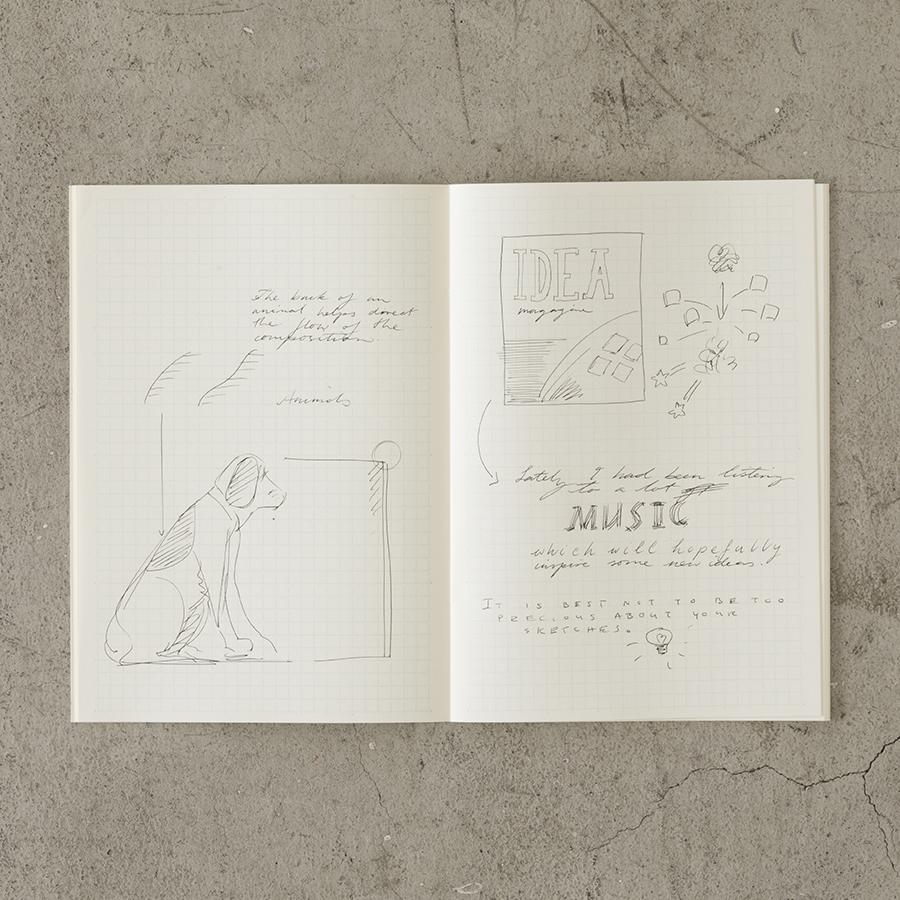 The back of an
animal helps direct
the flow of the
composition.
Animals
IDEA
magazine
Lately I had been listening
to a lot of
MUSIC
which will hopefully
inspire some new ideas.
IT IS BEST NOT TO BE TOO
PRECIOUS ABOUT YOUR
SKETCHES.